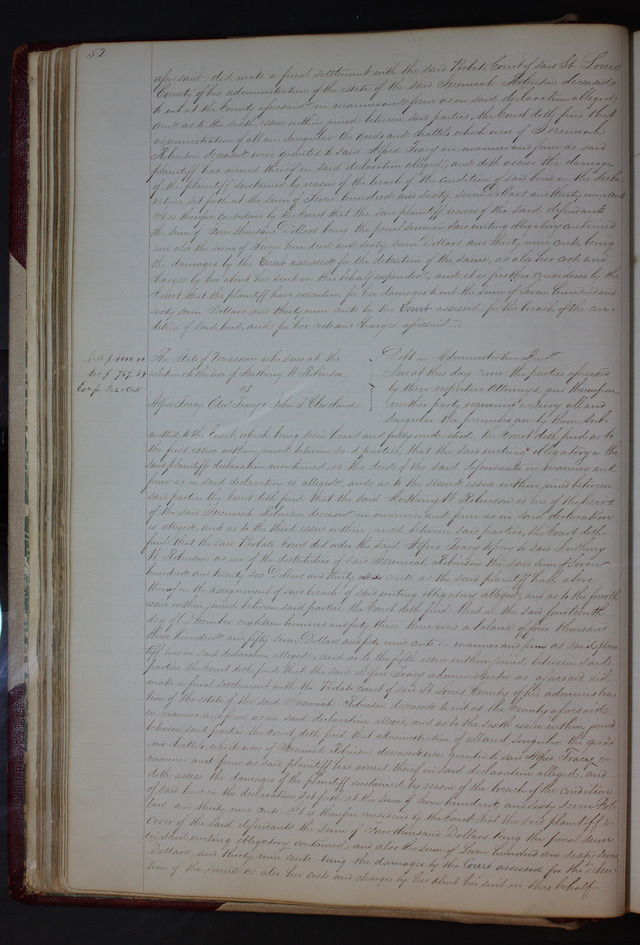 52
aforesaid did make a final settlement with the said Probate Court of said St. Louis
County of his administration of the estate of the said Jeremiah Robinson deceased
to wit at the County aforesaid in manner and form as in said declaration alleged,
and as to the sixth issue within joined between said parties, the Court doth find that
administration of all and singular the goods and chattels which were of Jeremiah
Robinson deceased were granted to said Alfred Tracy in manner and form as said
plaintiff has averred thereof in said declaration alleged, and doth assess the damages
of the plaintiff sustained by reason of the breach of the condition of said bond in the
set forth at the sum of Seven hundred and sixty seven Dollars and thirty nine cents
It is therefore considered by the Court that the said plaintiff recover of the said defendants
the sum of Four thousand Dollars being the penal sum in said writing obligatory contained
and also the sum of Seven hundred and sixty seven Dollars and thirty nine cents, being
the damages by the Court assessed for the detention of the same, as also her costs and
charges by her about her suit in this behalf expended, and it is further considered by the
Court that the plaintiff have execution for her damages to wit the sum of Seven hundred and
sixty seven Dollars and thirty nine cents by the Court assessed for the breach of the con-
dition of said bond, and for her costs and charges aforesaid.
The State of Missouri who sues at the
relation & to the use of Anthony W. Robinson
vs
Alfred Tracy, Edwd Tracy & John T. Cleveland
Debt on Administrations Bond
Now at this day come the parties aforesaid
by their respective Attorneys, and thereupon
neither party requiring a Jury all and
singular the premises are by them sub-
mitted to the Court, which being seen heard and fully understood, the Court doth find as to
the first issue within joined between said parties, that the said writing obligatory in the
said plaintiffs declaration mentioned is the deed of the said defendants in manner and
form as in said declaration is alleged, and as to the second issue within joined between
said parties the Court doth find that the said Anthony W. Robinson is one of the heirs
of the said Jeremiah Robinson deceased in manner and form as in said declaration
is alleged, and as to the third issue within joined between said parties, the Court doth
find that the said Probate Court did order the said Alfred Tracy to pay to said Anthony
W. Robinson as one of the distributees of said Jeremiah Robinson the said sum of Seven
hundred and twenty six Dollars and thirty six cents as the said plaintiff hath above
thereof in the assignment of said breach of said writing obligatory alleged, and as to the fourth
issue within joined between said parties the Court doth find that on the said fourteenth
day of December eighteen hundred and fifty three there was a balance of four thousand
three hundred and fifty seven Dollars and fifty nine cents in manner and form as said plain-
tiff has in said declaration alleged, and as to the fifth issue within joined between said
parties the Court doth find that the said Alfred Tracy administrator as aforesaid did
make a final settlement with the Probate Court of said St. Louis County of his administra-
tion of the estate of the said Jeremiah Robinson deceased to wit at the County aforesaid
in manner and form as in said declaration alleged, and as to the sixth issue within joined
between said parties the Court doth find that administration of all and singular the goods
and chattels which were of Jeremiah Robinson deceased were granted to said Alfred Tracy in
manner and form as said plaintiff has averred thereof in said declaration alleged, and
doth assess the damages of the plaintiff sustained by reason of the breach of the condition
of said bond in the declaration set forth at the sum of Seven hundred and sixty seven Dol-
lars and thirty nine cents. It is therefore considered by the Court that the said plaintiff re-
cover of the said defendants the sum of Four thousand Dollars being the penal sum
in said writing obligatory contained and also the sum of Seven hundred and sixty seven
Dollars, and thirty nine cents being the damages by the Court assessed for the deten-
tion of the same as also her costs and charges by her about her suit in this behalf